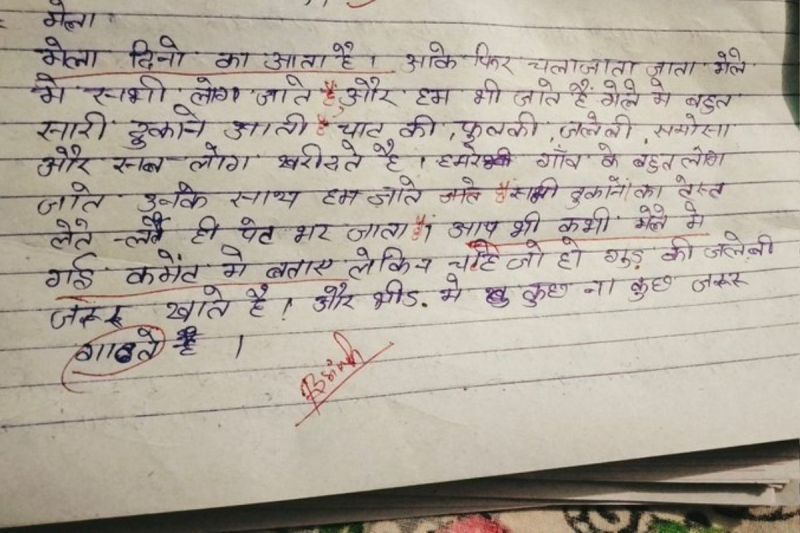 मेला
मेला दिनो का आता है। आके फिर चलाजाता जाता मेले
मे सभी लोग जाते है और हम भी जाते हैं मेले मे बहुत
सारी दुकाने आती है चाट की, फुलकी, जलेली, समोसा
और सब लोग खरीदते है। हमारे गाँव के बहुत लोग
जाते उनके साथ हम जाते जाते है सभी दुकानों का टेस्त
लेते -लेते ही पेट भर जाता है। आप भी कभी मेले मे
गई कमेंट मे बताए लेकिन चाहे जो हो गुड़ की जलेबी
जरूर खाते है। और भीड. मे कुछ ना कुछ जरूर
गाते है।